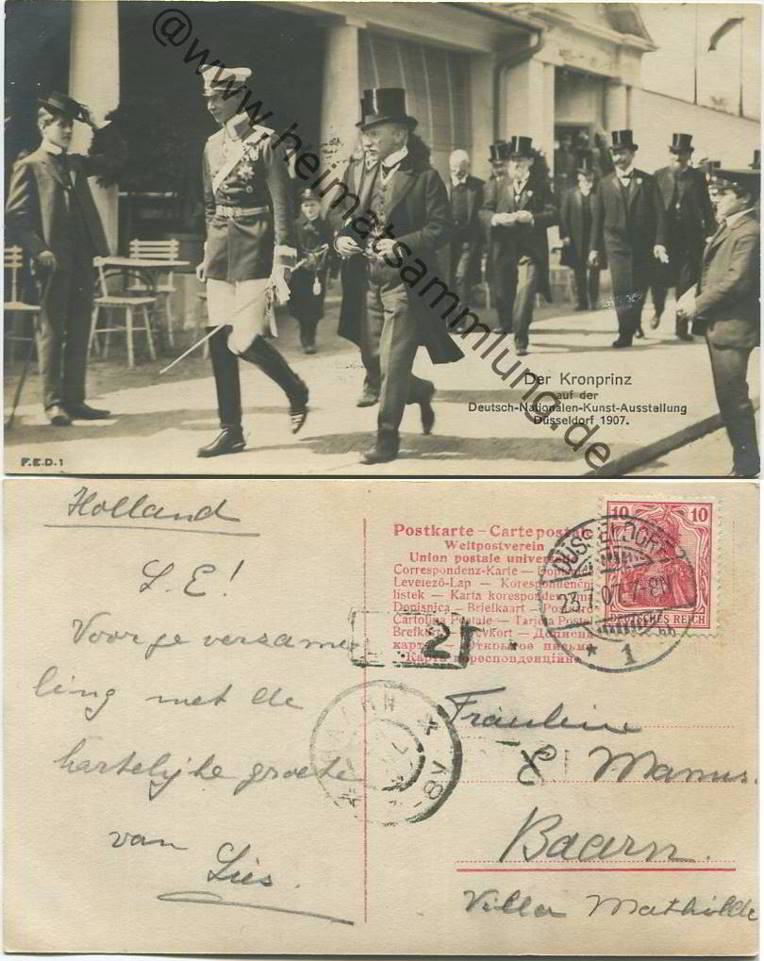 @www.heimatsammlung.de
Der Kronprinz
auf der
Deutsch-Nationalen-Kunst-Ausstellung
Düsseldorf 1907.
F.E.D.1
Holland
L. E!
Voor je versame
ling met de
hartelijke groete
van
Lies.
Postkarte – Cartepostale
Weltpostverein
Union postale universelle
Correspondenz-Karte —
Levelező-Lap —
listek — Karta
Dopisnica — Briefkaart —
Cartolina Postale — Tarjeta Postal
Brefkort — Brevkort —
Открытое письмо
10 10
DEUTSCHES REICH
DÜSSELDORF
23.7.07. 7-8N
* 1
BAARN
2
Fräulein
L. Manus.
Baarn.
Villa Mathilde